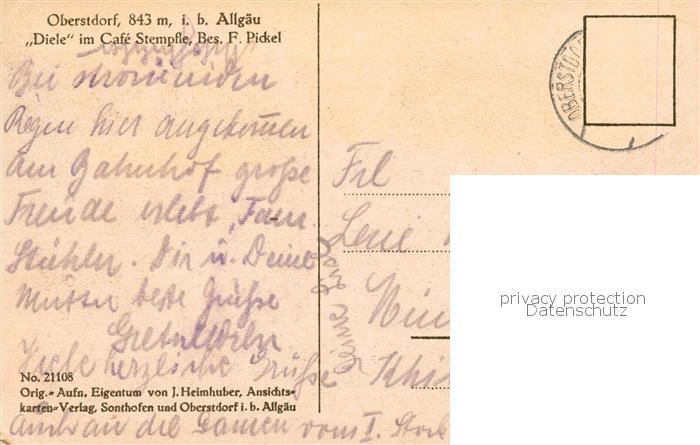 Oberstdorf, 843 m, i. b. Allgäu
„Diele" im Café Stempfle, Bes. F. Pickel
Bei strömenden
Regen hier angekommen
am Bahnhof große
Freude erlebt, Fam.
Stähler. Dir u. Deine
Mutter beste Grüße
herzliche Grüße
No. 21108
Orig.- Aufn. Eigentum von J. Heimhuber, Ansichts-
karten-Verlag, Sonthofen und Oberstdorf i. b. Allgäu
Auch an die Damen vom I. Stock
OBERSTDO
Frl
privacy protection
Datenschutz